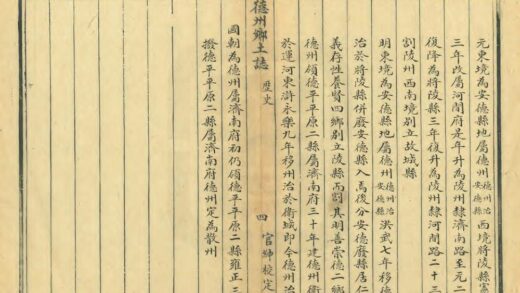 元東境為安德縣地屬德州德州治安德縣西境將陵縣憲
三年改屬河間府是年升為陵州隸濟南路至元二
復降為將陵縣三年復升為陵州隸河間路二十三
割陵州西南境別立故城縣
明東境為安德縣地屬德州德州治安德縣洪武七年移德
治於將陵縣併廢安德縣入焉後分安德廢縣居仁
義存性養賢四鄉別立陵縣而割其明善崇德二鄉
德州領德平平原二縣屬濟南府三十年建德州衛
於運河東滸永樂九年移州治於衛城即今德州治
德州鄉土誌 歷史 四 官師校定
國朝為德州屬濟南府初仍領德平平原二縣雍正三
撥德平平原二縣屬濟南府德州定為散州